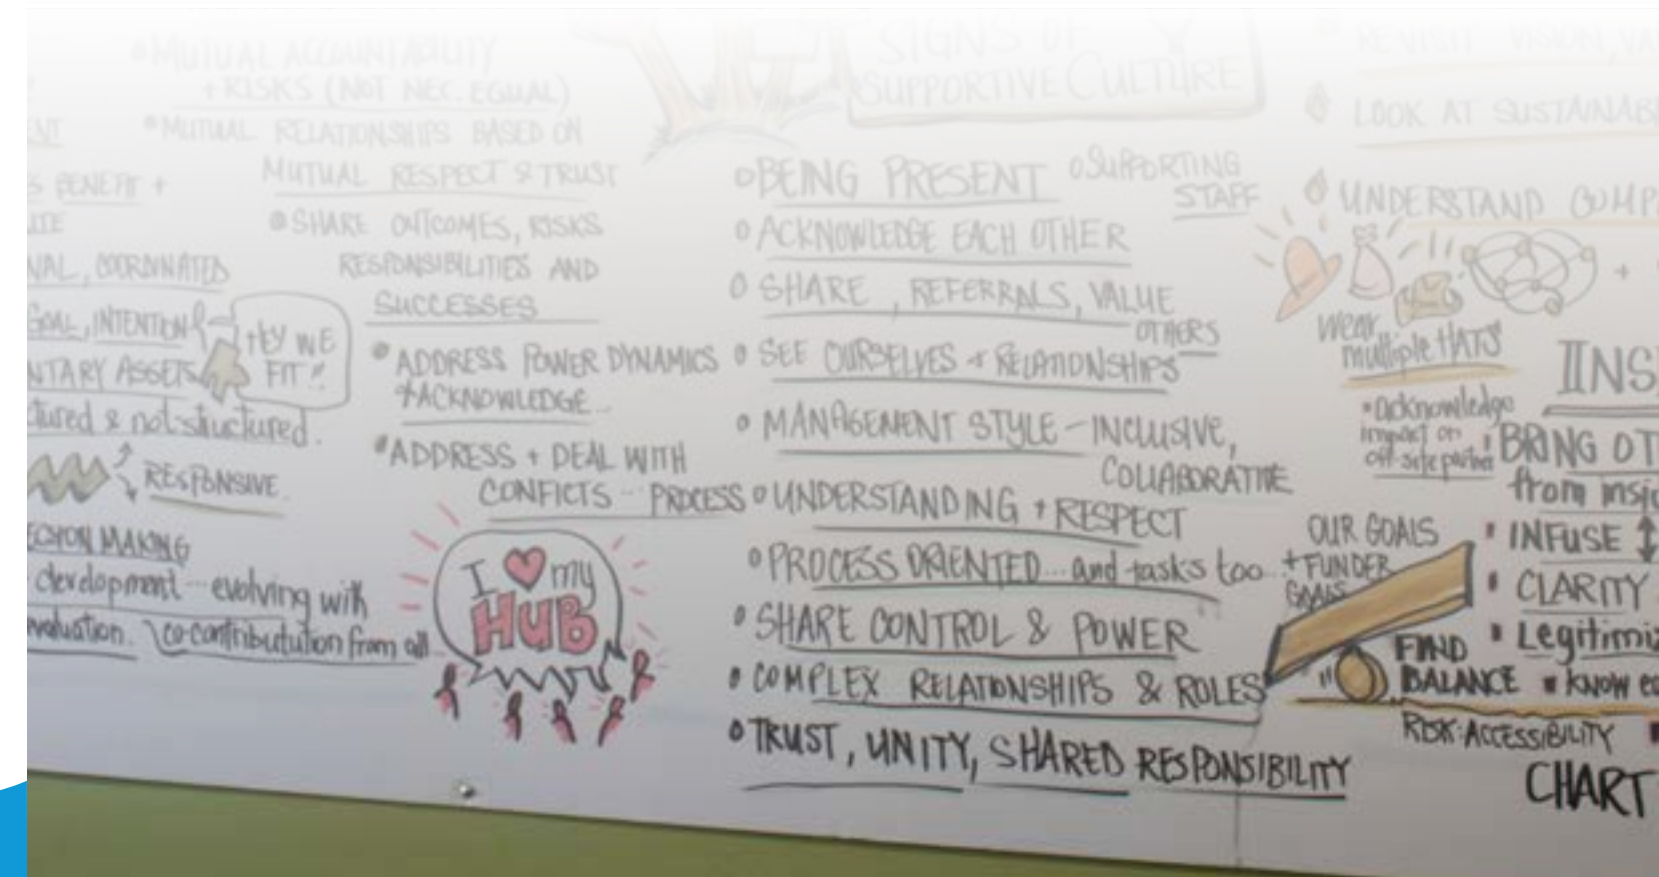 MUTUAL ACCOUNTABILITY
+ RISKS (NOT NEC. EGUAL)
MUTUAL RELATIONSHIPS BASED ON
MUTUAL RESPECT & TRUST
SHARE OUTCOMES, RISKS
RESPONSIBILITIES AND
SUCCESSES
ADDRESS POWER DYNAMICS
+ACKNOWLEDGE
ADDRESS + DEAL WITH
CONFICTS - PROCESS
S BENEFIT +
COORDINATED
GOAL, INTENTION
NTARY ASSETS
HEY WE
FIT!!
ctured & not-structured.
RESPONSIVE
MAKING
development -- evolving with
evaluation. \ co-contribtution from all
I ♥ my
HUB
SIGNS OF
SUPPORTIVE CULTURE
BEING PRESENT
SUPPORTING
STAFF
ACKNOWLEDGE EACH OTHER
SHARE, REFERRALS, VALUE
OTHERS
SEE OURSELVES + RELATIONSHIPS
MANAGEMENT STYLE - INCLUSIVE,
COLLABORATIVE
UNDERSTANDING + RESPECT
PROCESS ORIENTED... and tasks too
SHARE CONTROL & POWER
COMPLEX RELATIONSHIPS & ROLES
TRUST, UNITY, SHARED RESPONSIBILITY
REVISIT VISION, VA
LOOK AT SUSTAINAB
UNDERSTAND COMP
wear
multiple HATS
acknowledge
impact on
off-site partner
OUR GOALS
+ FUNDER
GOALS
FIND
BALANCE
RISK: ACCESSIBILITY
INS
BRING OT
from insi
INFUSE
CLARITY
Legitimiz
KNOW
CHART